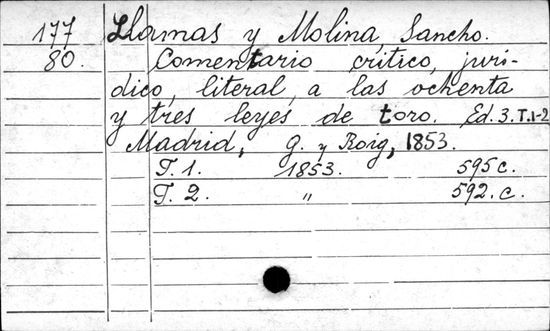 177 Llamas y Molina, Sancho.
80. Comentario critico, juri-
dico, literal, a las ochenta
y tres leyes de toro. Ed. 3. T. 1-2
Madrid, G. y Roig, 1853.
T. 1. 1853. 595 c.
T. 2. " 592. c.